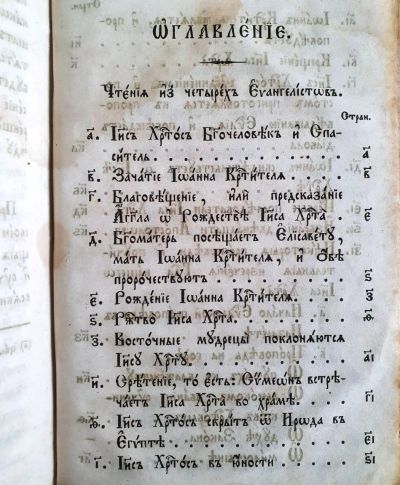 Ѡ҆ГЛАВЛЕНІЕ.
Чте́нїѧ и҆з̾ четыре́хъ Є҆ѵⷢ҇ангелі́стѡвъ.
Стран.
а҃. І҆и҃съ Хрⷭ҇то́съ Бг҃очеловѣ́къ и҆ Спа-
си́тель. а҃
в҃. Зача́тїе І҆ѡа́нна Крⷭ҇ти́телѧ. в҃
г҃. Благовѣ́щенїе, и҆лѝ предсказа́нїе
А҆́гг҃ла ѡ҆ Рождествѣ̀ І҆и҃са Хрⷭ҇та̀. є҃
д҃. Бг҃ома́терь посѣща́етъ Є҆лїсаве́тꙋ,
ма́ть І҆ѡа́нна Крⷭ҇ти́телѧ, и҆ Ѻ҆бѣ̀
проро́чествꙋютъ. ѕ҃
є҃. Рожде́нїе І҆ѡа́нна Крⷭ҇ти́телѧ. з҃
ѕ҃. Ржⷭ҇тво̀ І҆и҃са Хрⷭ҇та̀. ѳ҃
з҃. Восто́чные мꙋдрецы̀ поклонѧ́ютсѧ
І҆и҃сꙋ Хрⷭ҇тꙋ̀. а҃і
и҃. Срѣ́тенїе, то̀ є҆́сть: Сѷмеѡ́нъ встрѣ-
ча́етъ І҆и҃са Хрⷭ҇та̀ во хра́мѣ. г҃і
ѳ҃. І҆и҃съ Хрⷭ҇то́съ скры́тъ ѿ И҆́рѡда въ
Є҆гѵ́птѣ. є҃і
і҃. І҆и҃съ Хрⷭ҇то́съ въ ю҆́ности. ѕ҃і